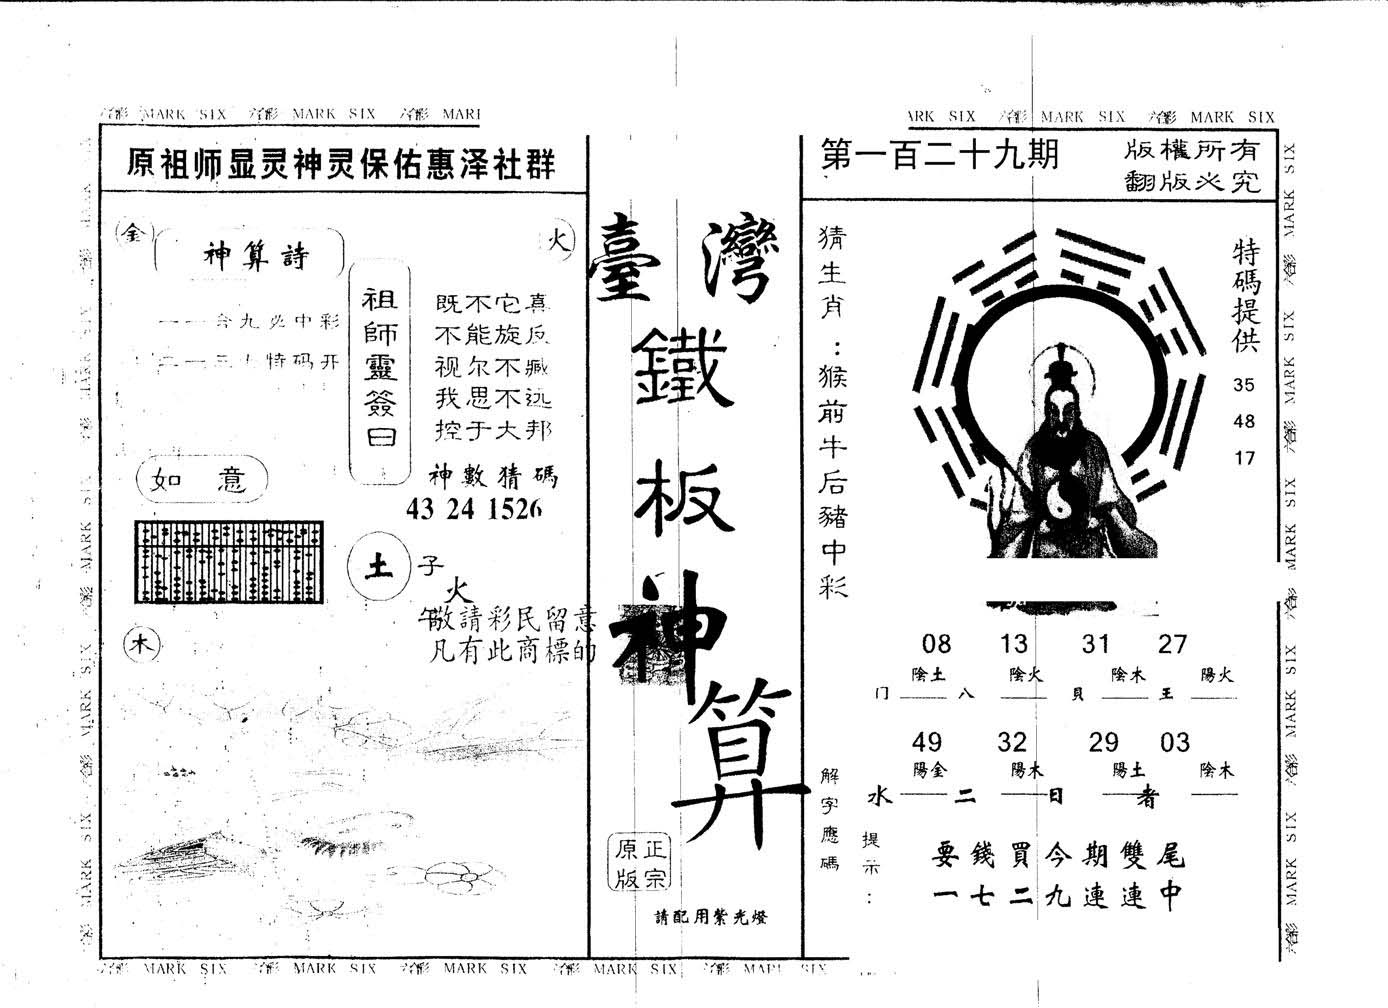 六合彩 MARK SIX 六合彩 MARK SIX 六合彩
MARK SIX 六合彩 MARK SIX 六合彩 MARK SIX
原祖师显灵神灵保佑惠泽社群
金
火
神算詩
一一合九必中彩
特码开
祖師靈簽曰
既不它真
不能旋反
视尔不臧
我思不远
控于大邦
神數猜碼
43 24 1526
如意
土
子
火
木
敬請彩民留意
凡有此商標的
臺灣
鐵板神算
正宗
原版
請配用紫光燈
第一百二十九期
版權所有
翻版必究
猜生肖：猴前牛后豬中彩
特碼提供
35
48
17
08 13 31 27
陰土 陰火 陰木 陽火
门 八 貝 王
49 32 29 03
陽金 陽木 陽土 陰木
水 二 日 者
解字應碼
提示：
要錢買今期雙尾
一七二九連連中
六合彩 MARK SIX 六合彩 MARK SIX 六合彩 MARK SIX 六合彩 MARK SIX 六合彩 MARK SIX